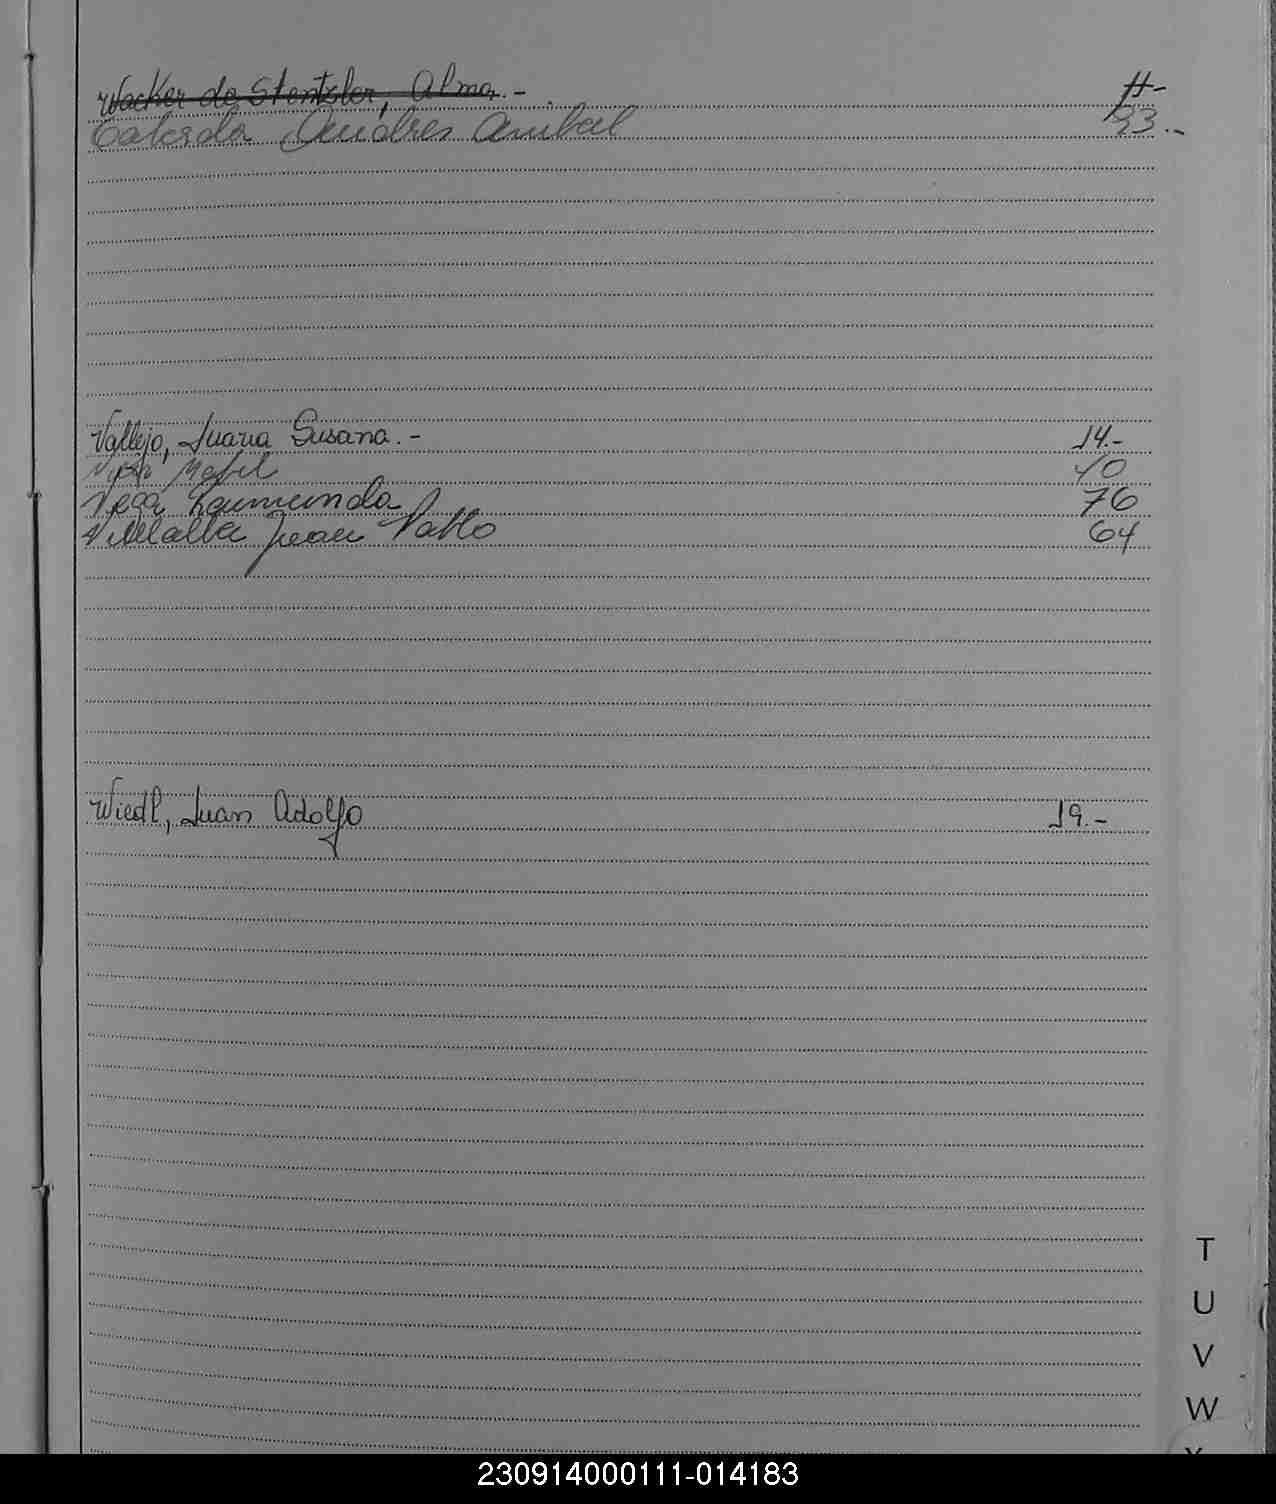 Wacker de Stentzler, Alma.-
Andres Anibal 93.-
Vallejo, Juana Susana.- 14.-
40
Vega Raimunda 76
Villalba Juan Pablo 64
Wiedl, Juan Adolfo 19.-
T
U
V
W
230914000111-014183